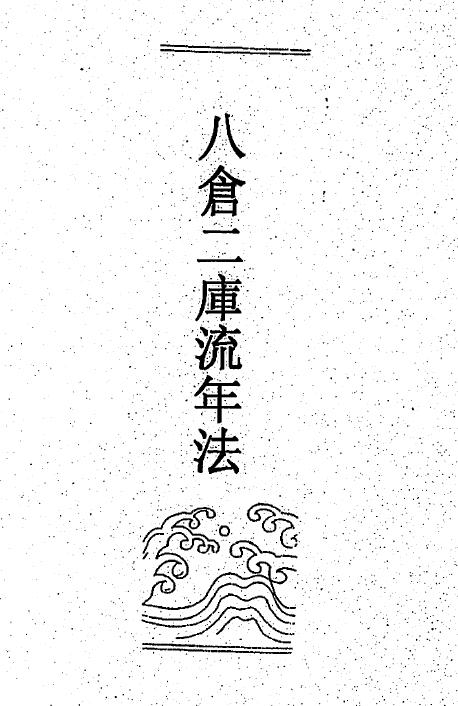 八倉二庫流年法